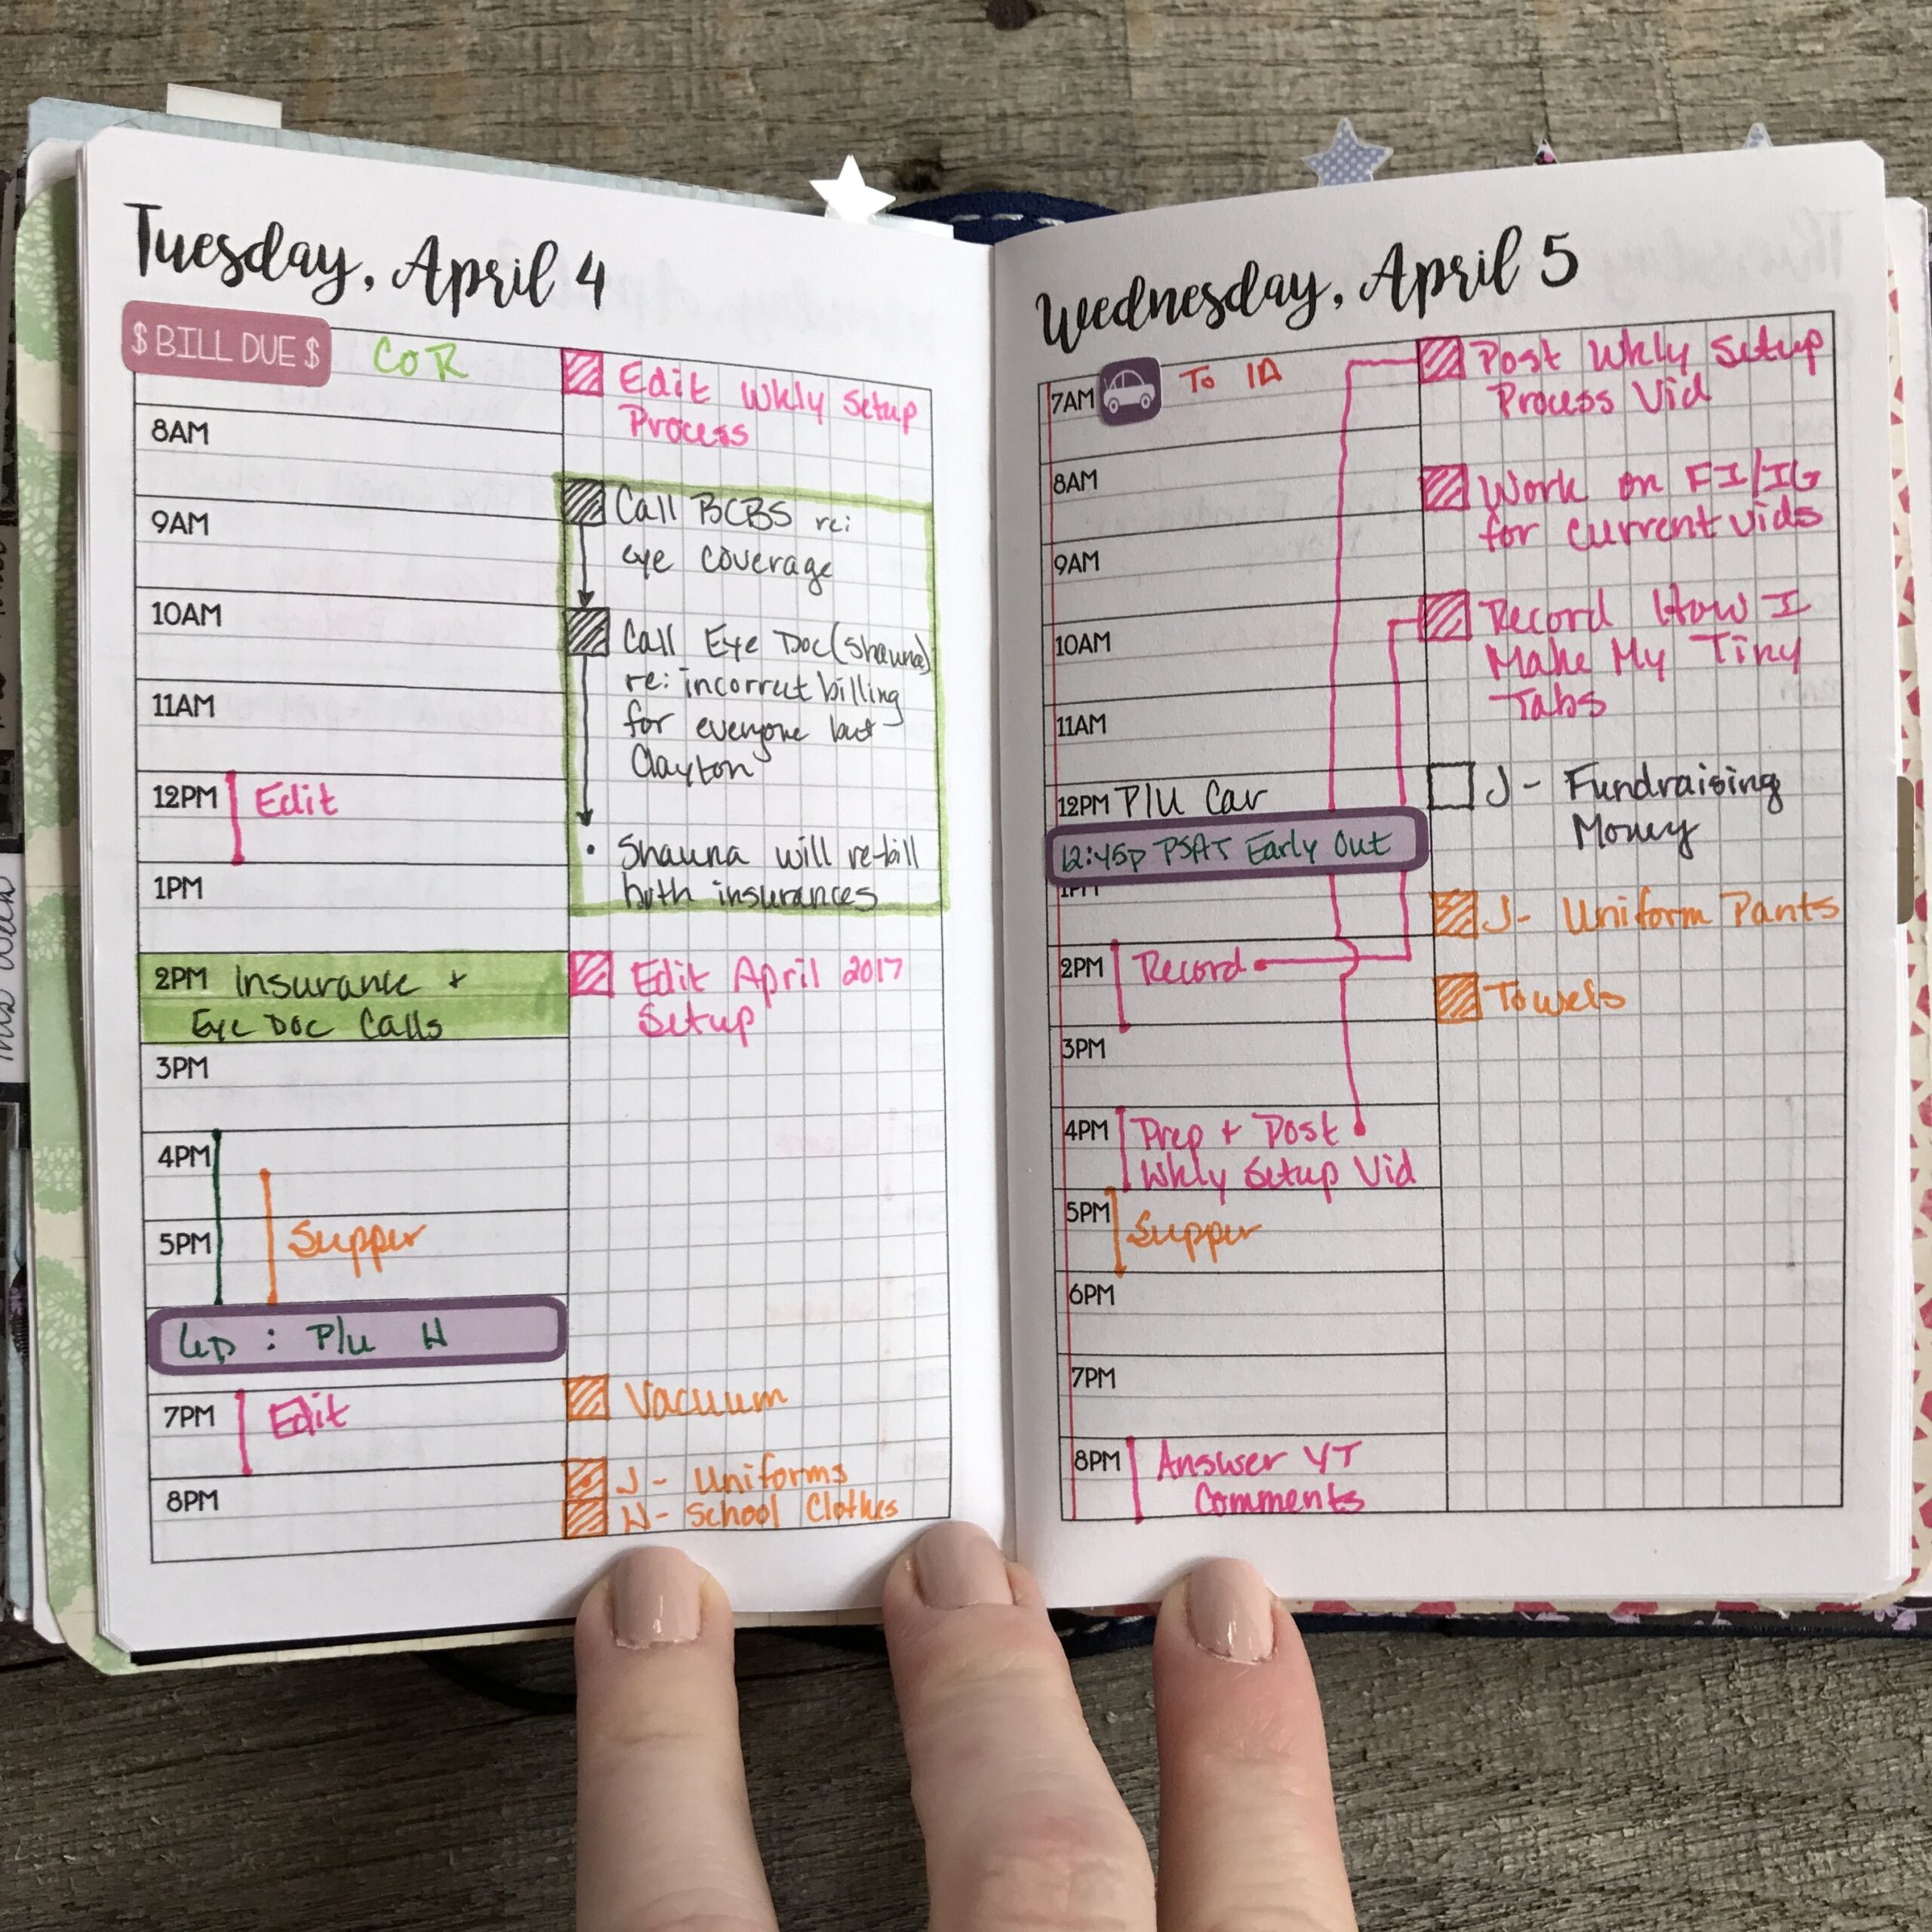 Tuesday, April 4
$ BILL DUE $ COR
8AM
9AM
10AM
11AM
12PM Edit
1PM
2PM Insurance +
Eye Doc Calls
3PM
4PM
5PM Supper
6p : P/u H
7PM Edit
8PM
Edit Wkly Setup
Process
Call BCBS re:
eye coverage
Call Eye Doc (Shauna)
re: incorrect billing
for everyone but
Clayton
• Shauna will re-bill
both insurances
Edit April 2017
Setup
Vacuum
J - Uniforms
H - School Clothes
Wednesday, April 5
7AM To IA
8AM
9AM
10AM
11AM
12PM P/U Car
12:45p PSAT Early Out
1PM
2PM Record
3PM
4PM Prep + Post
Wkly Setup Vid
5PM Supper
6PM
7PM
8PM Answer YT
Comments
Post Wkly Setup
Process Vid
Work on FI/IG
for current vids
Record How I
Make My Tiny
Tabs
J - Fundraising
Money
J - Uniform Pants
Towels